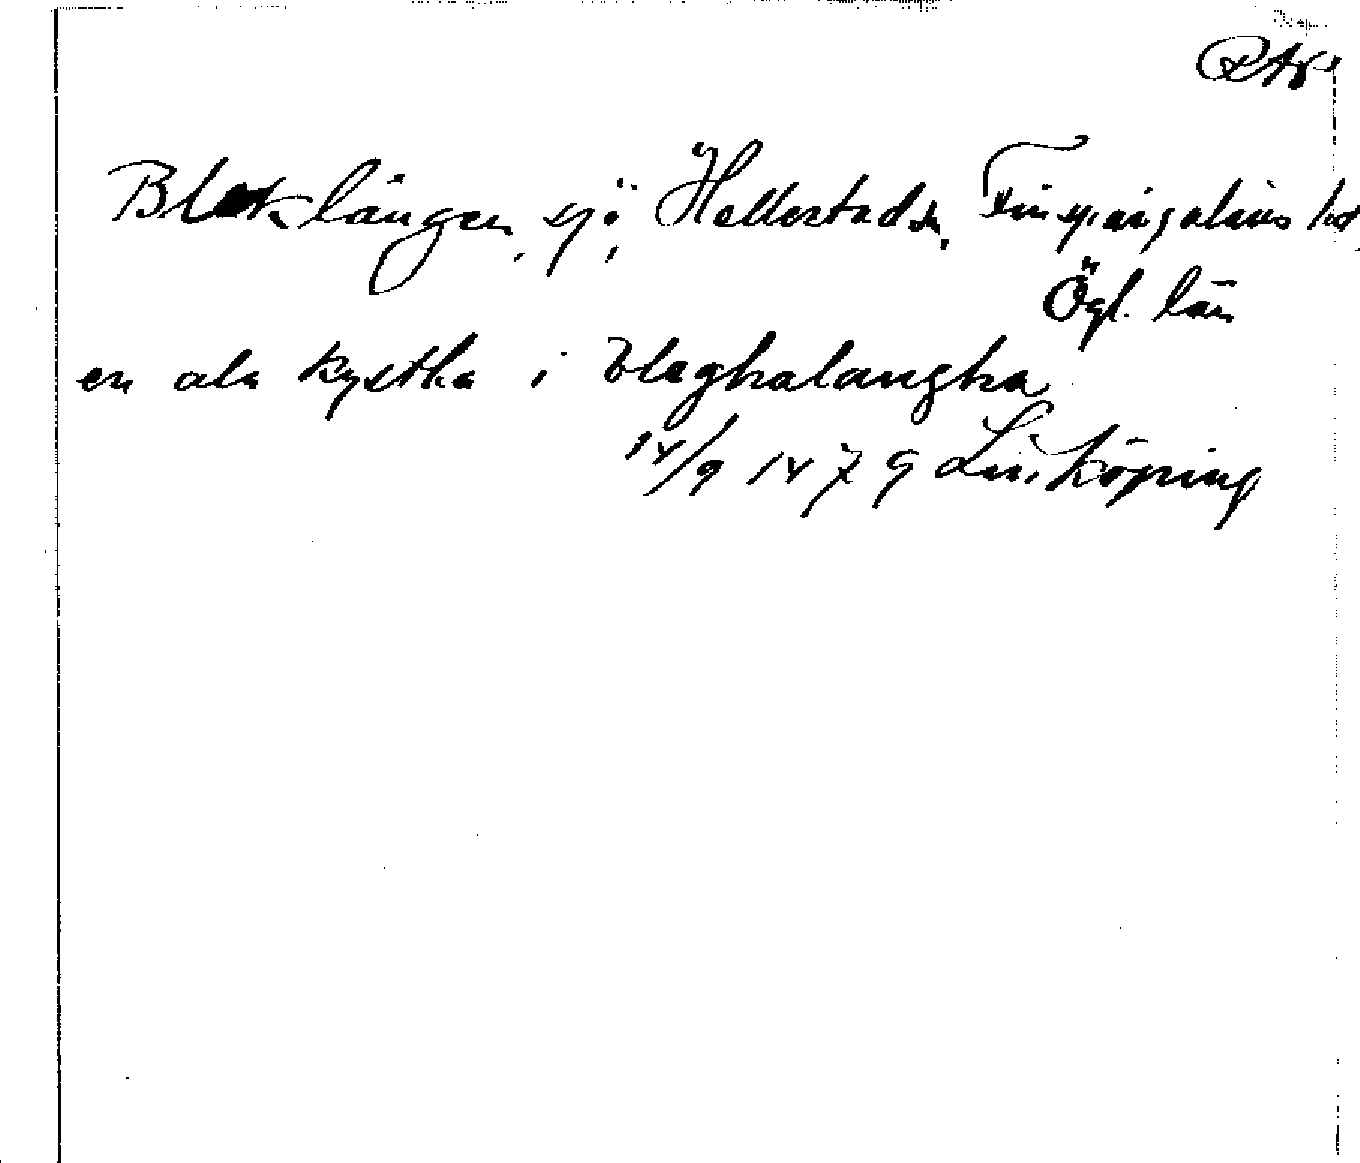 Bleklången, sjö, Hellestads sn, Finspångaläns hd
Ögl. län
en ala kystha i bleghalangha
14/9 1479 Linköping